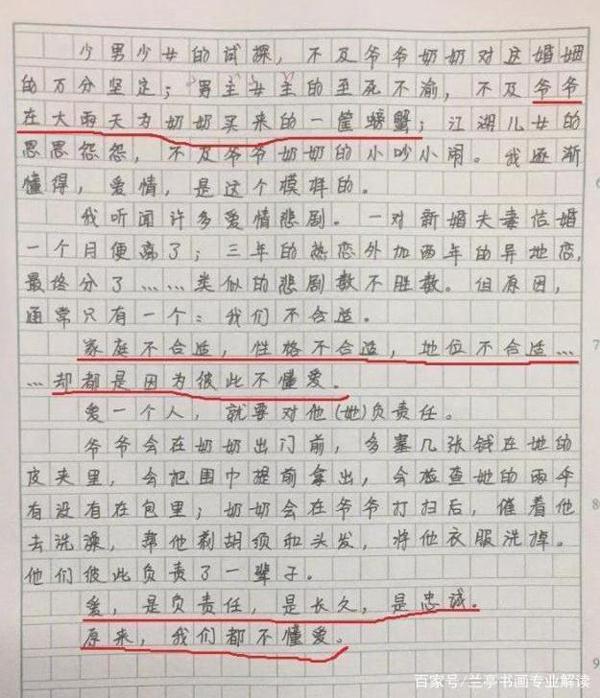 少男少女的试探，不及爷爷奶奶对这婚姻
的万分坚定；男主女主的至死不渝，不及爷爷
在大雨天为奶奶买来的一筐螃蟹；江湖儿女的
恩恩怨怨，不及爷爷奶奶的小吵小闹。我逐渐
懂得，爱情，是这个模样的。
我听闻许多爱情悲剧。一对新婚夫妻结婚
一个月便离了；三年的热恋外加两年的异地恋，
最终分了……类似的悲剧数不胜数。但原因，
通常只有一个：我们不合适。
家庭不合适，性格不合适，地位不合适…
…却都是因为彼此不懂爱。
爱一个人，就要对他(她)负责任。
爷爷会在奶奶出门前，多塞几张钱在她的
皮夹里，会把围巾提前拿出，会检查她的雨伞
有没有在包里；奶奶会在爷爷打扫后，催着他
去洗澡，帮他剃胡须和头发，将他衣服洗掉。
他们彼此负责了一辈子。
爱，是负责任，是长久，是忠诚。
原来，我们都不懂爱。
7
80
9
百家号/兰亭书画专业解读